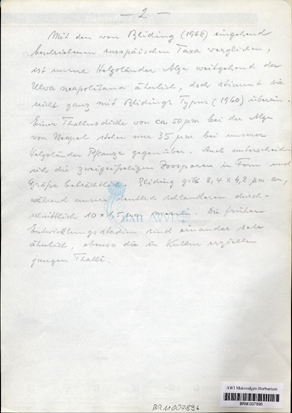 — 2 —
Mit den von Bliding (1968) eingehend
beschriebenen europäischen Taxa verglichen,
ist unsere Helgoländer Alge weitgehend der
Ulva neapolitana ähnlich, doch stimmt sie
nicht ganz mit Blidings Typus (1960) überein.
Einer Thallusdicke von ca 50 µm bei der Alge
von Neapel stehen nur 35 µm bei unserer
Helgoländer Pflanze gegenüber. Auch unterscheiden
sich die zweigeißeligen Zoosporen in Form und
Größe beträchtlich. Bliding gibt 8,7 x 4,2 µm an,
während unsere deutlich schlankeren durch-
schnittlich 10 x 45 µm
Die frühen
Entwicklungsstadien sind einander sehr
ähnlich, ebenso die in Kultur erzielten
jungen Thalli.
AWI Makroalgen-Herbarium
BRM 007896
BRM007896